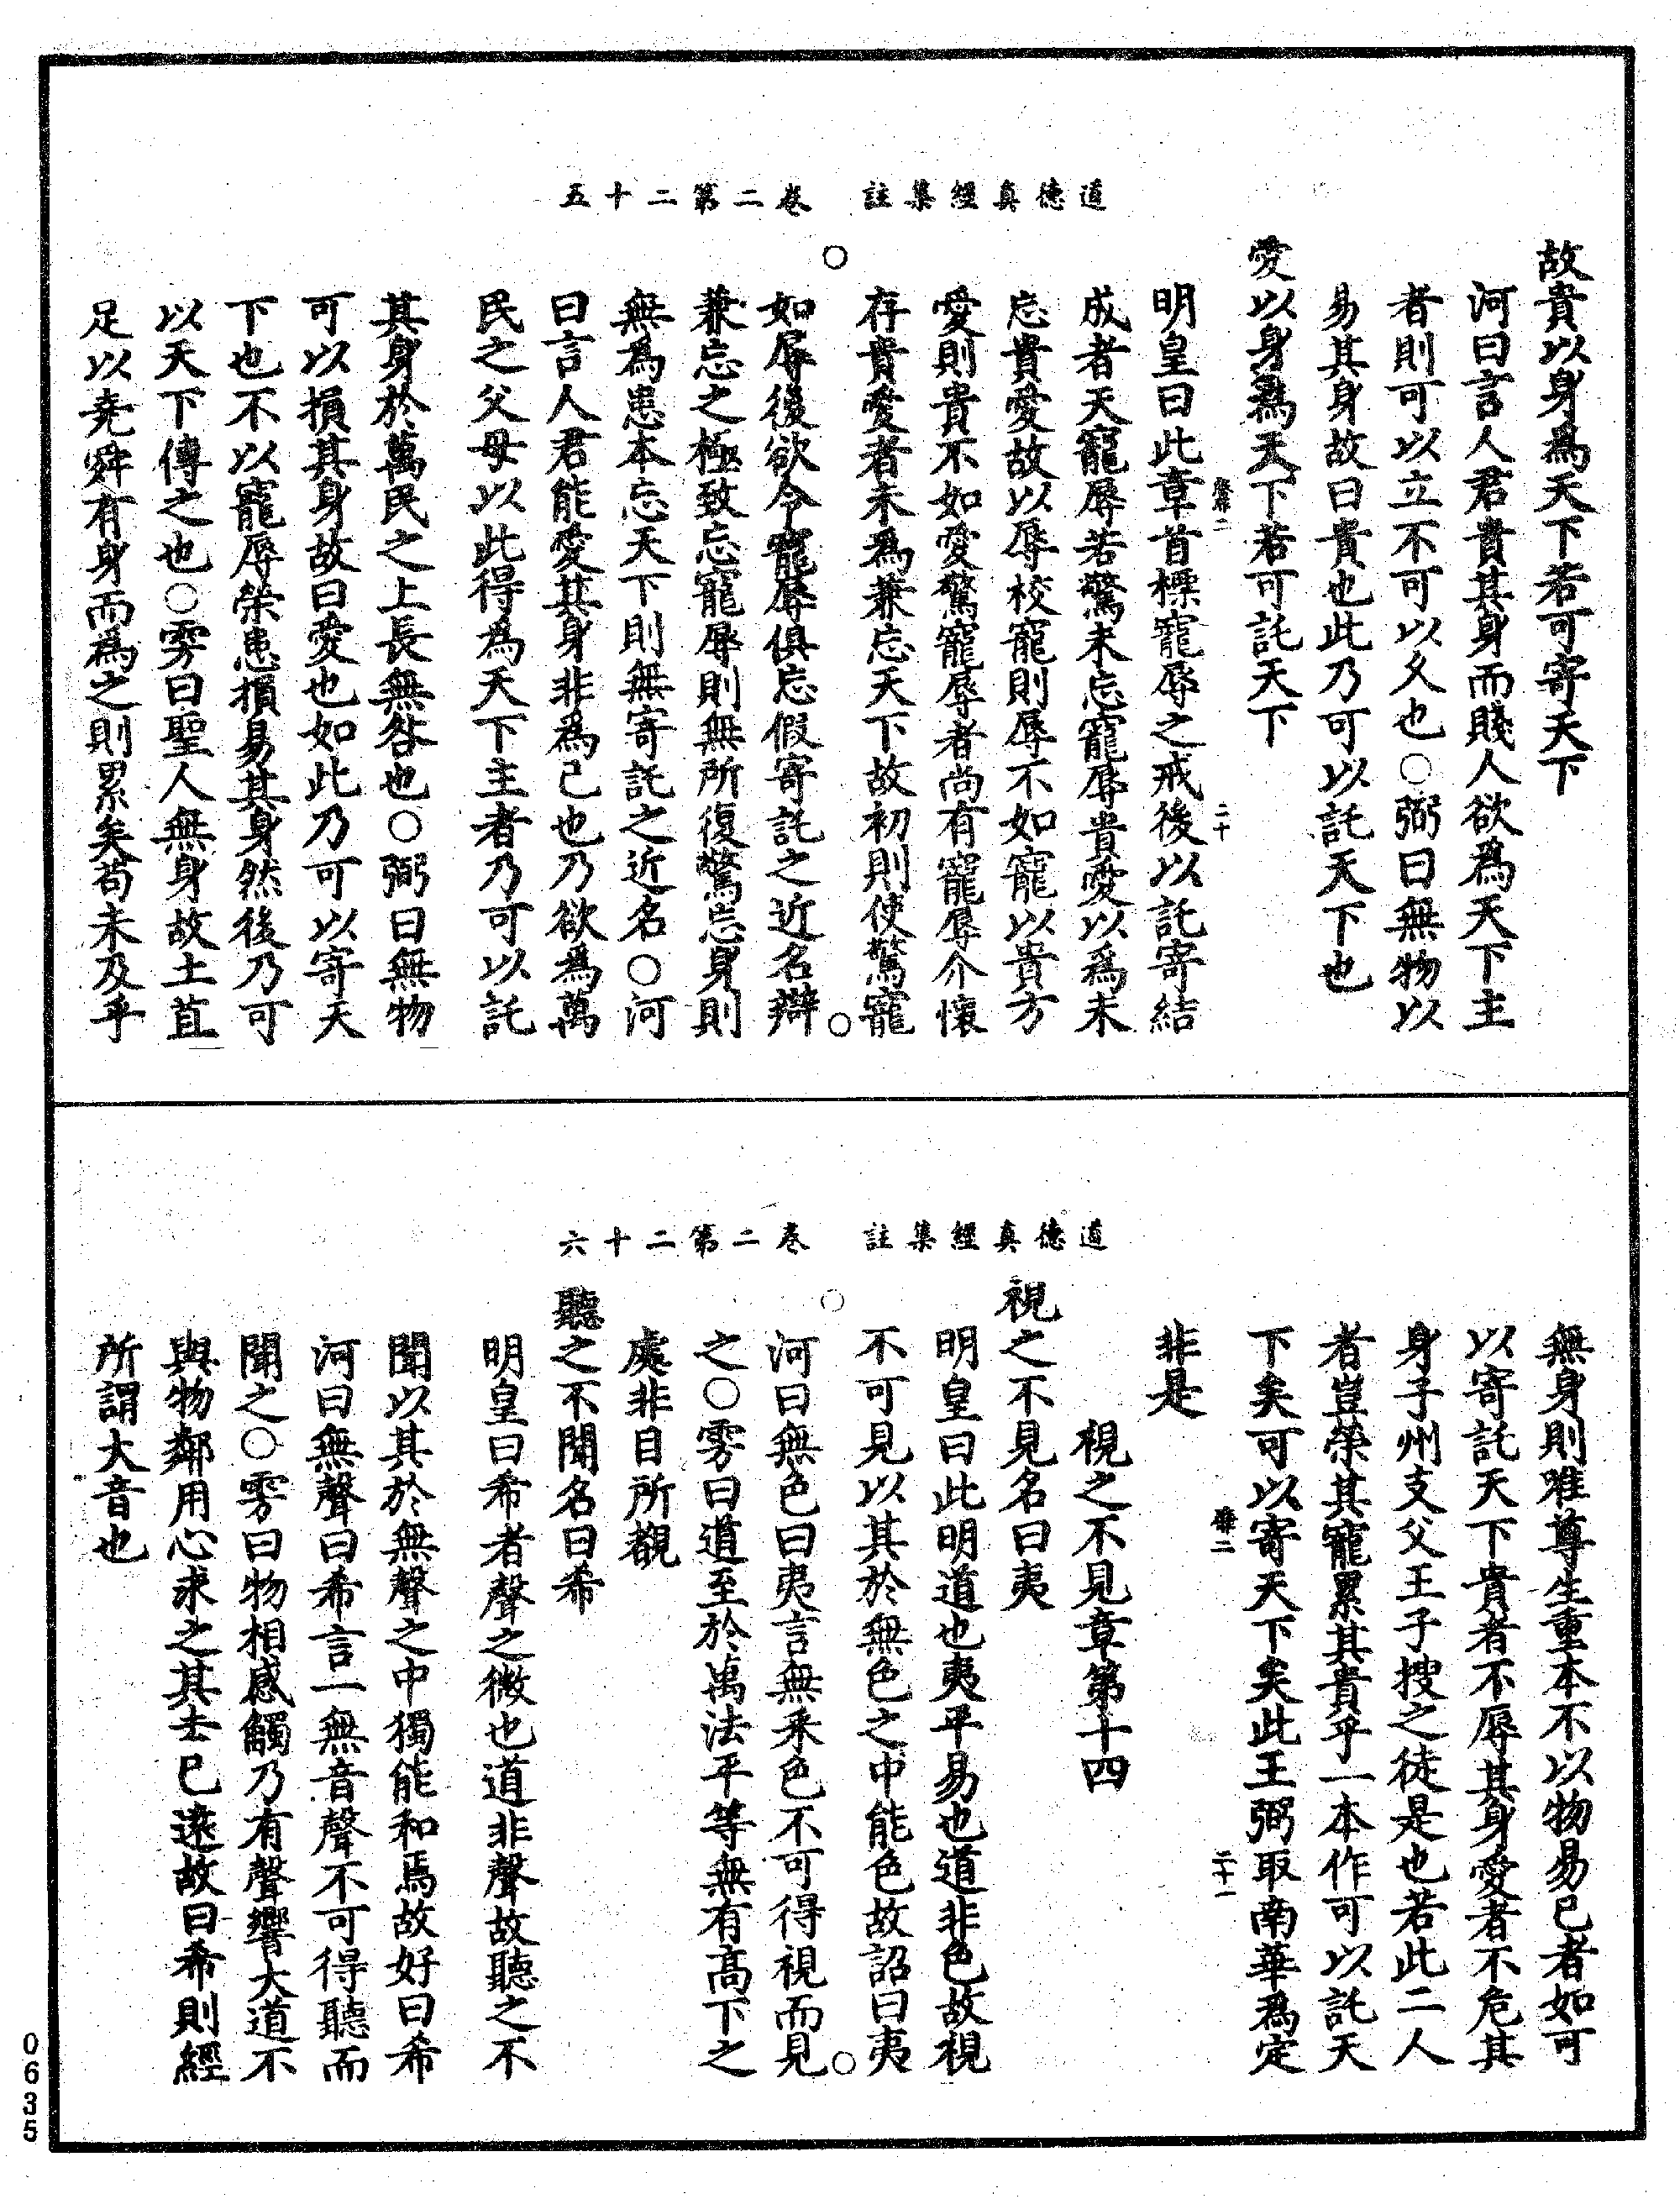 道德真經集註　卷二第二十五
故貴以身爲天下若可寄天下
河曰言人君貴其身而賤人欲爲天下主
者則可以立不可以久也○弼曰無物以
易其身故曰貴也此乃可以託天下也
愛以身爲天下若可託天下
明皇曰此章首標寵辱之戒後以託寄結
成者天寵辱若驚未忘寵辱貴愛以爲未
忘貴愛故以辱校寵則辱不如寵以貴方
愛則貴不如愛驚寵辱者尚有寵辱介懷
存貴愛者未爲兼忘天下故初則使驚寵
如辱後欲令寵辱俱忘假寄託之近名辯
兼忘之極致忘寵辱則無所復驚忘身則
無爲患本忘天下則無寄託之近名○河
曰言人君能愛其身非爲己也乃欲爲萬
民之父母以此得爲天下主者乃可以託
其身於萬民之上長無咎也○弼曰無物
可以損其身故曰愛也如此乃可以寄天
下也不以寵辱榮患損易其身然後乃可
以天下傳之也○雱曰聖人無身故土苴
足以堯舜有身而爲之則累矣苟未及乎
二十
道德真經集註　卷二第二十六
無身則唯尊生重本不以物易已者如可
以寄託天下貴者不辱其身愛者不危其
身子州支父王子搜之徒是也若此二人
者豈榮其寵累其貴乎一本作可以託天
下矣可以寄天下矣此王弼取南華爲定
非是
二十一
視之不見章第十四
視之不見名曰夷
明皇曰此明道也夷平易也道非色故視
不可見以其於無色之中能色故詔曰夷
河曰無色曰夷言無釆色不可得視而見
之○雱曰道至於萬法平等無有高下之
處非目所覩
聽之不聞名曰希
明皇曰希者聲之微也道非聲故聽之不
聞以其於無聲之中獨能和焉故好曰希
河曰無聲曰希言一無音聲不可得聽而
聞之○雱曰物相感觸乃有聲響大道不
與物鄰用心求之其去已遠故曰希則經
所謂大音也
0635